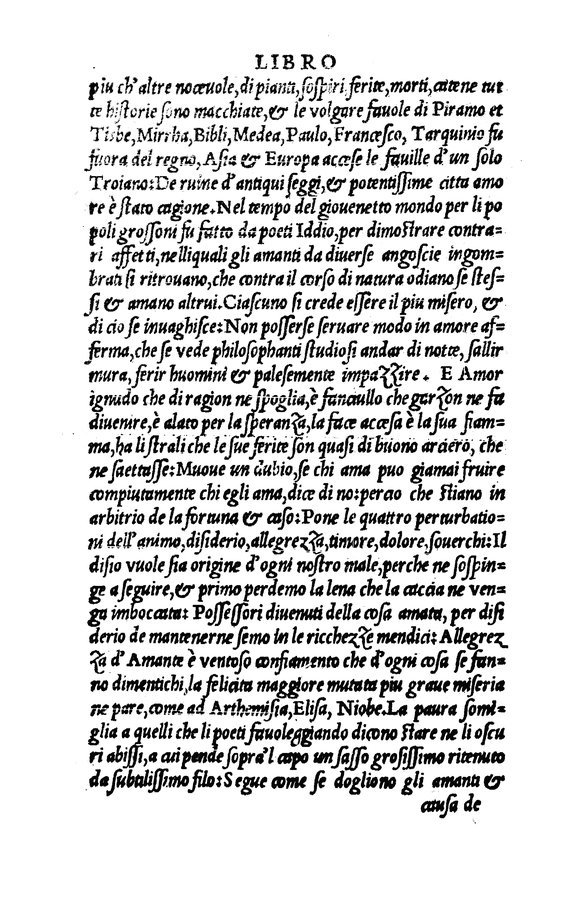 LIBRO
piu ch'altre noceuole, di pianti, sospiri ferite, morti, catene tut
te historie sono macchiate, & le volgare fauole di Piramo et
Tisbe, Mirrha, Bibli, Medea, Paulo, Francesco, Tarquinio fu
fuora del regno, Asia & Europa accese le fauille d'un solo
Troiano: De ruine d'antiqui seggi, & potentissime citta amo
re è stato cagione. Nel tempo del giouenetto mondo per li po
poli grossoni fu fatto da poeti Iddio, per dimostrare contra=
ri affetti, nelliquali gli amanti da diuerse angoscie ingom=
brati si ritrouano, che contra il corso di natura odiano se stes=
si & amano altrui. Ciascuno si crede essere il piu misero, &
di cio se inuaghisce: Non posserse seruare modo in amore af=
ferma, che se vede philosophanti studiosi andar di notte, sallir
mura, ferir huomini & palesemente impazzire. E Amor
ignudo che di ragion ne spoglia, è fanciullo che garzon ne fa
diuenire, è alato per la speranza, la face accesa è la sua fiam=
ma, ha li strali che le sue ferite son quasi di buono arciero, che
ne saettasse: Muoue un dubio, se chi ama puo giamai fruire
compiutamente chi egli ama, dice di no: percio che stiano in
arbitrio de la fortuna & caso: Pone le quattro perturbatio=
ni dell'animo, disiderio, allegrezza, timore, dolore, souerchi: Il
disio vuole sia origine d'ogni nostro male, perche ne sospin=
ge a seguire, & primo perdemo la lena che la caccia ne ven=
ga imboccata: Possessori diuenuti della cosa amata, per disi
derio de mantenerne semo in le ricchezze mendici: Allegrez
za d'Amante è ventoso confiamento che d'ogni cosa se fan=
no dimentichi, la felicita maggiore mutata piu graue miseria
ne pare, come ad Arthemisia, Elisa, Niobe. La paura somi=
glia a quelli che li poeti fauoleggiando dicono stare ne li oscu
ri abissi, a cui pende sopra'l capo un sasso grosissimo ritenuto
da subtilissimo filo: Segue come se dogliono gli amanti &
causa de